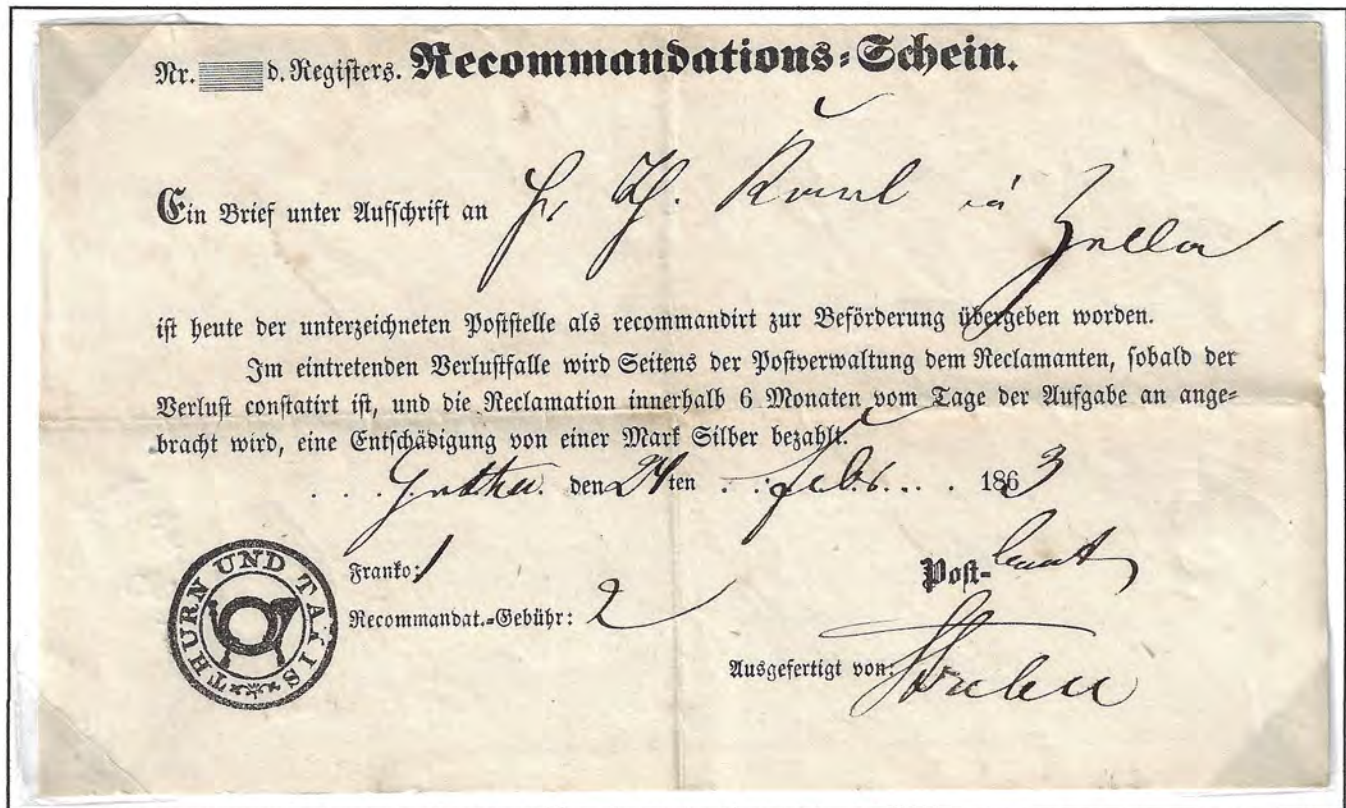 Nr. d. Registers. Recommandations-Schein.
Ein Brief unter Aufschrift an Hr. Th. Karl in Zella
ist heute der unterzeichneten Poststelle als recommandirt zur Beförderung übergeben worden.
Im eintretenden Verlustfalle wird Seitens der Postverwaltung dem Reclamanten, sobald der
Verlust constatirt ist, und die Reclamation innerhalb 6 Monaten vom Tage der Aufgabe an ange-
bracht wird, eine Entschädigung von einer Mark Silber bezahlt.
Gotha den 24ten Febr. 1863
THURN UND TAXIS
Franko: 1
Post-amt
Recommandat.-Gebühr: 2
Ausgefertigt von: